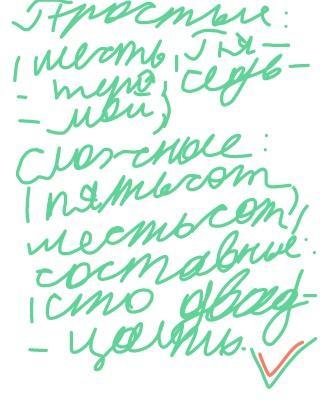 Простые:
(шесть, пя-
- теро, седь-
- мой)
Сложные:
(пятьсот,
шестьсот)
составные:
(сто двад-
- цать.